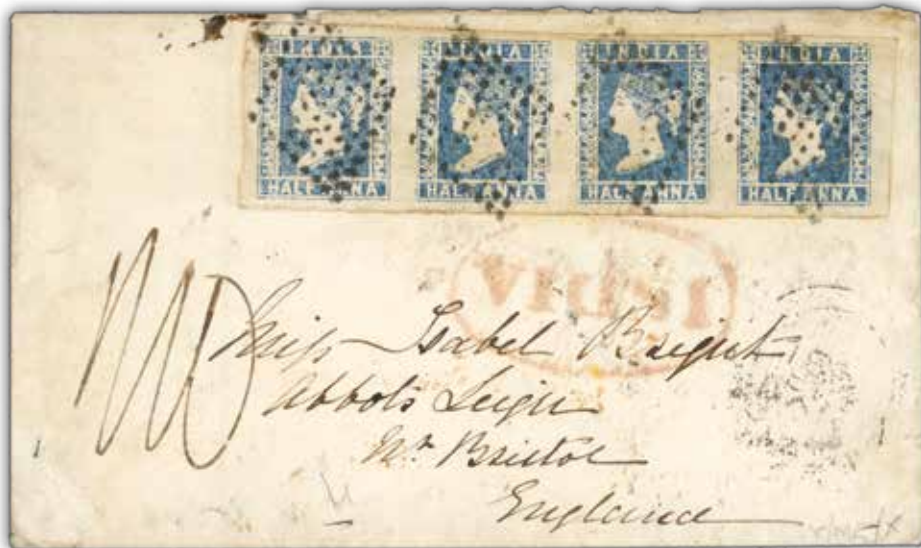 INDIA INDIA INDIA INDIA
HALF ANNA HALF ANNA HALF ANNA HALF ANNA
INDIA
Miss Isabel Bright
Abbots Leigh
Nr Bristol
England